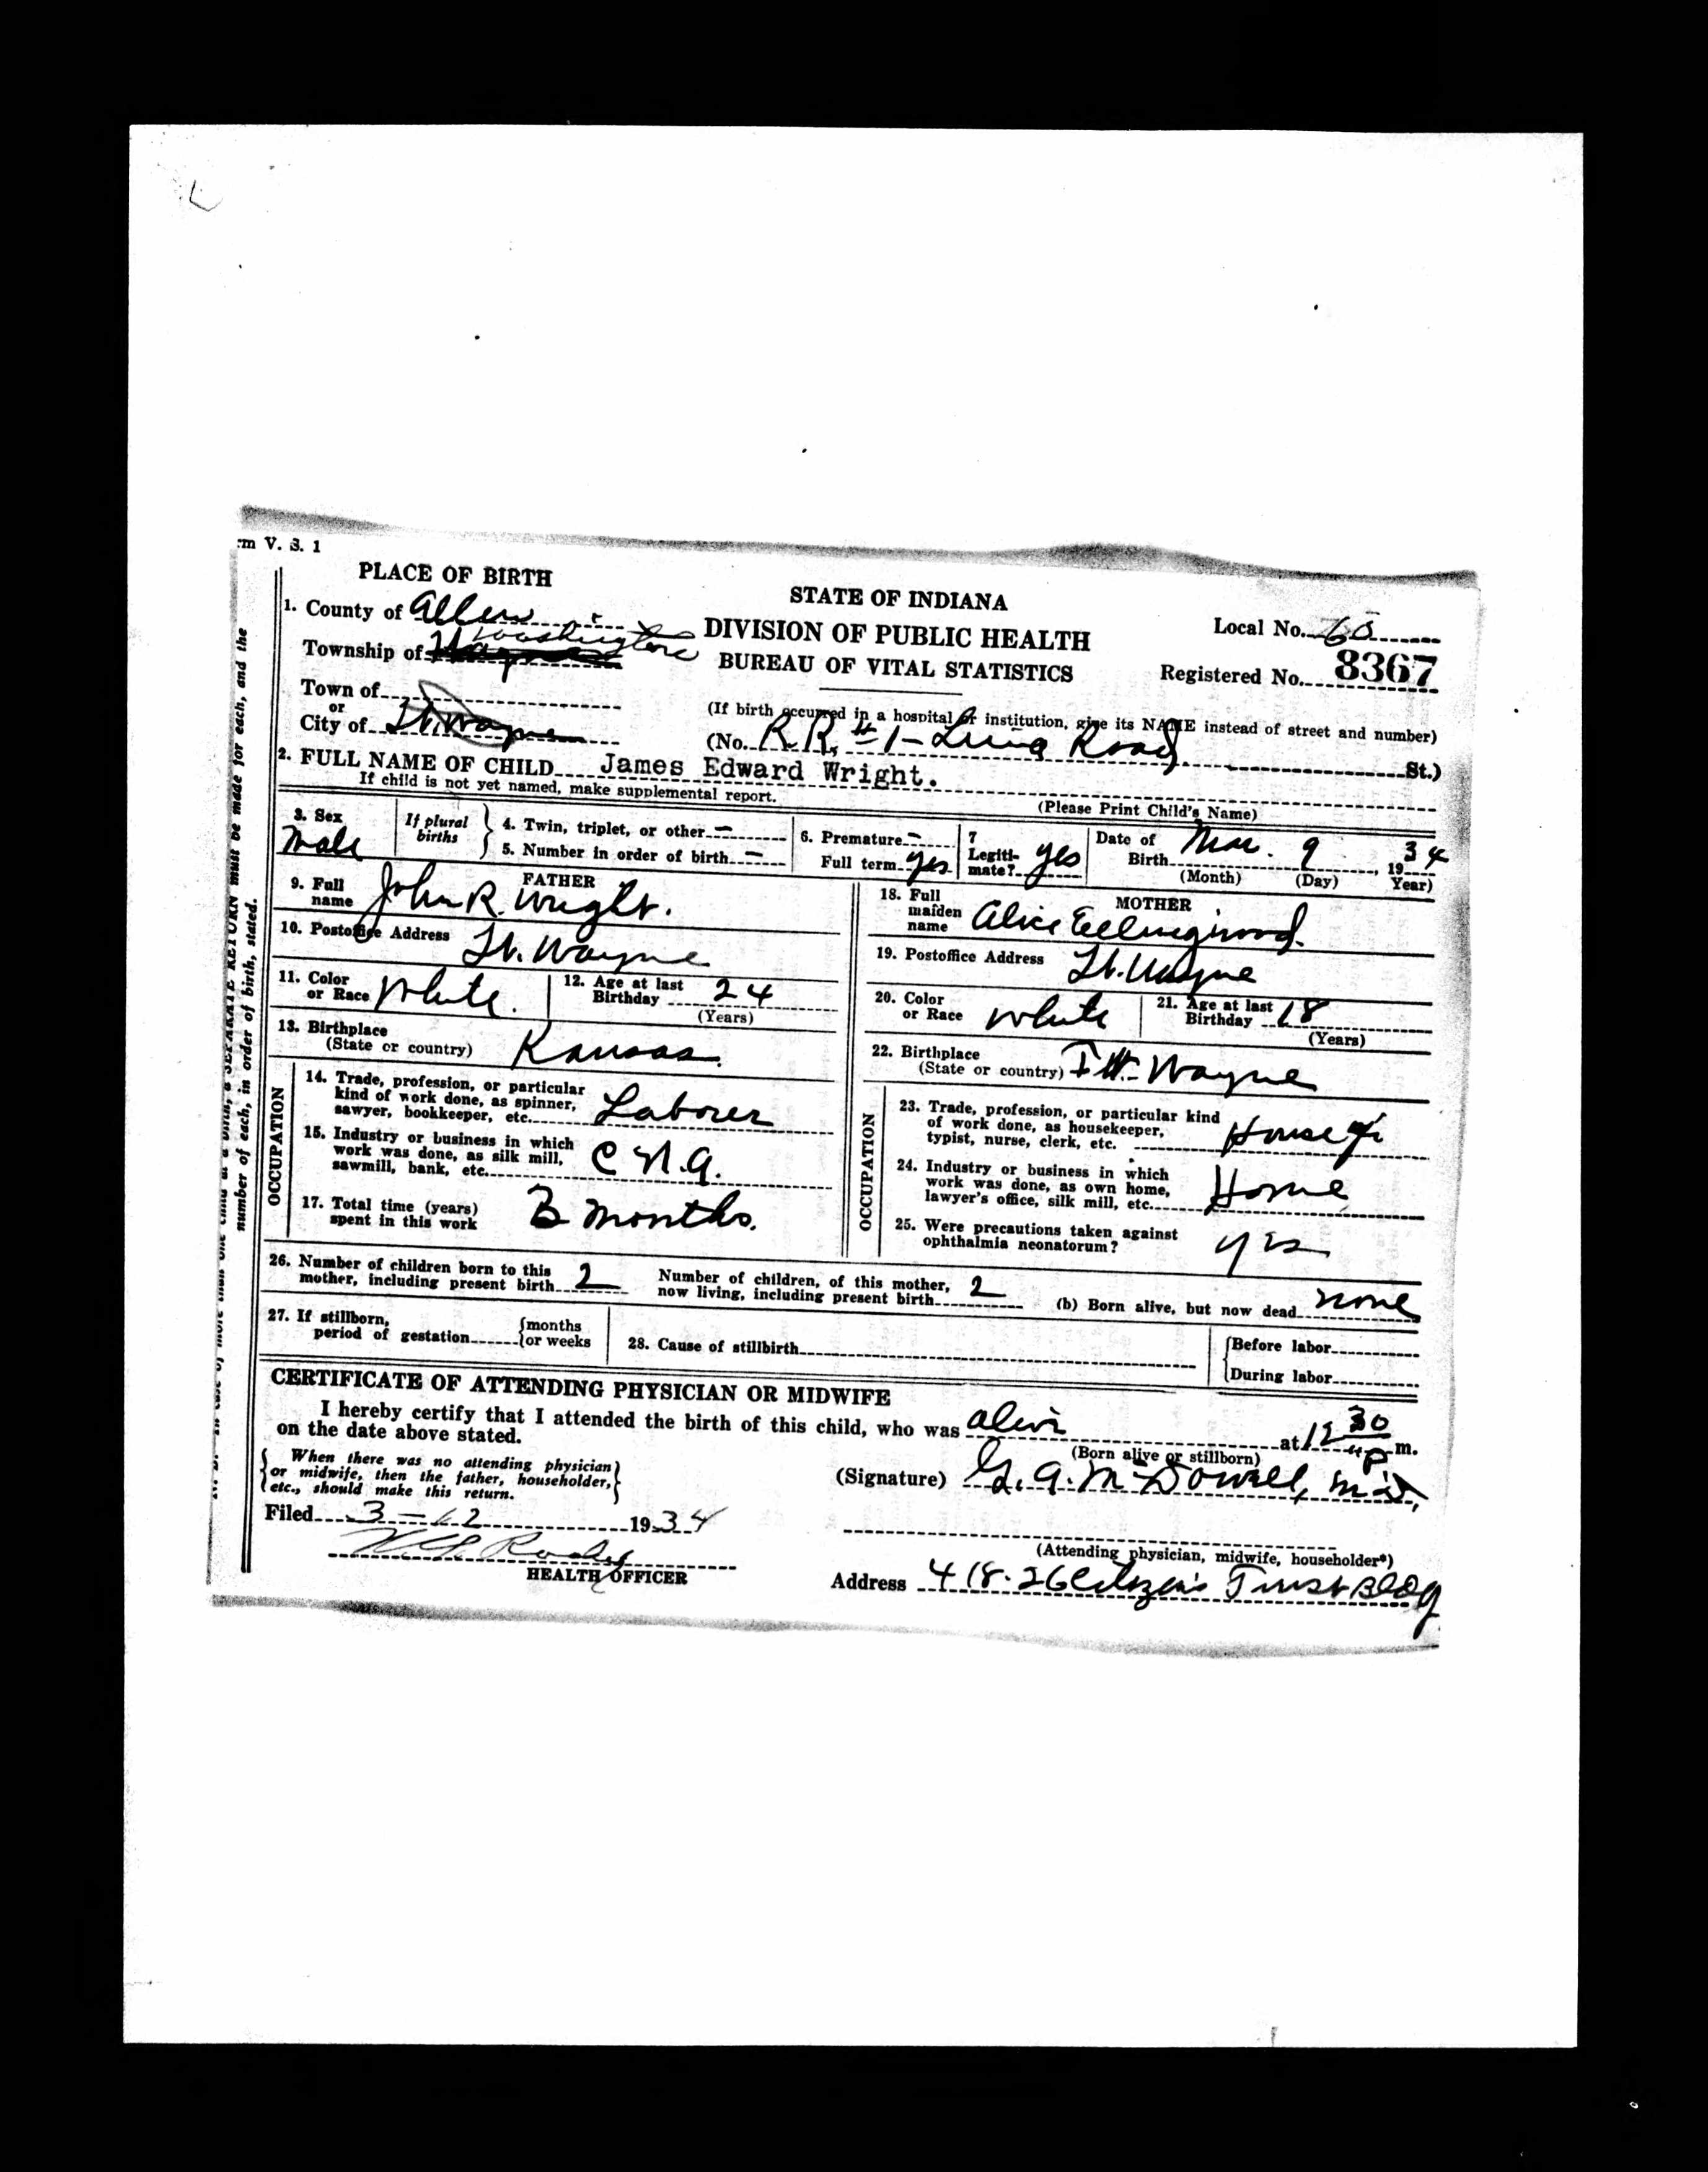 :m V. S. 1
PLACE OF BIRTH
STATE OF INDIANA
DIVISION OF PUBLIC HEALTH
BUREAU OF VITAL STATISTICS
1. County of Allen
Township of Wayne Washington
Town of
or
City of Ft. Wayne
Local No.
Registered No. 8367
(If birth occurred in a hospital or institution, give its NAME instead of street and number)
(No. R.R. # 1 - Road. St.)
2. FULL NAME OF CHILD James Edward Wright.
If child is not yet named, make supplemental report.
(Please Print Child's Name)
3. Sex Male
If plural births
4. Twin, triplet, or other —
5. Number in order of birth —
6. Premature –
Full term yes
7 Legiti-mate? yes
Date of Birth Mar. 9, 1934
(Month) (Day) Year)
FATHER
9. Full name John R. Wright.
10. Postoffice Address Ft. Wayne
11. Color or Race White.
12. Age at last Birthday 24 (Years)
13. Birthplace (State or country) Kansas.
OCCUPATION
14. Trade, profession, or particular kind of work done, as spinner, sawyer, bookkeeper, etc. Laborer
15. Industry or business in which work was done, as silk mill, sawmill, bank, etc.
17. Total time (years) spent in this work 3 months.
MOTHER
18. Full maiden name Alice Eellingwood.
19. Postoffice Address Ft. Wayne
20. Color or Race White
21. Age at last Birthday 18 (Years)
22. Birthplace (State or country) Ft. Wayne
OCCUPATION
23. Trade, profession, or particular kind of work done, as housekeeper, typist, nurse, clerk, etc.
24. Industry or business in which work was done, as own home, lawyer's office, silk mill, etc. Home
25. Were precautions taken against ophthalmia neonatorum? yes
26. Number of children born to this mother, including present birth 2
Number of children, of this mother, now living, including present birth 2
(b) Born alive, but now dead none
27. If stillborn, period of gestation {months or weeks
28. Cause of stillbirth
{Before labor
During labor
CERTIFICATE OF ATTENDING PHYSICIAN OR MIDWIFE
I hereby certify that I attended the birth of this child, who was alive at 12 30 P m.
on the date above stated.
(Born alive or stillborn)
{When there was no attending physician or midwife, then the father, householder, etc., should make this return.}
(Signature) G. A. McDowell, M.D,
(Attending physician, midwife, householder*)
Filed 3-12 1934
HEALTH OFFICER
Address 418-26 Citizen's Trust Bldg
must be made for each, and the
number of each, in order of birth, stated.